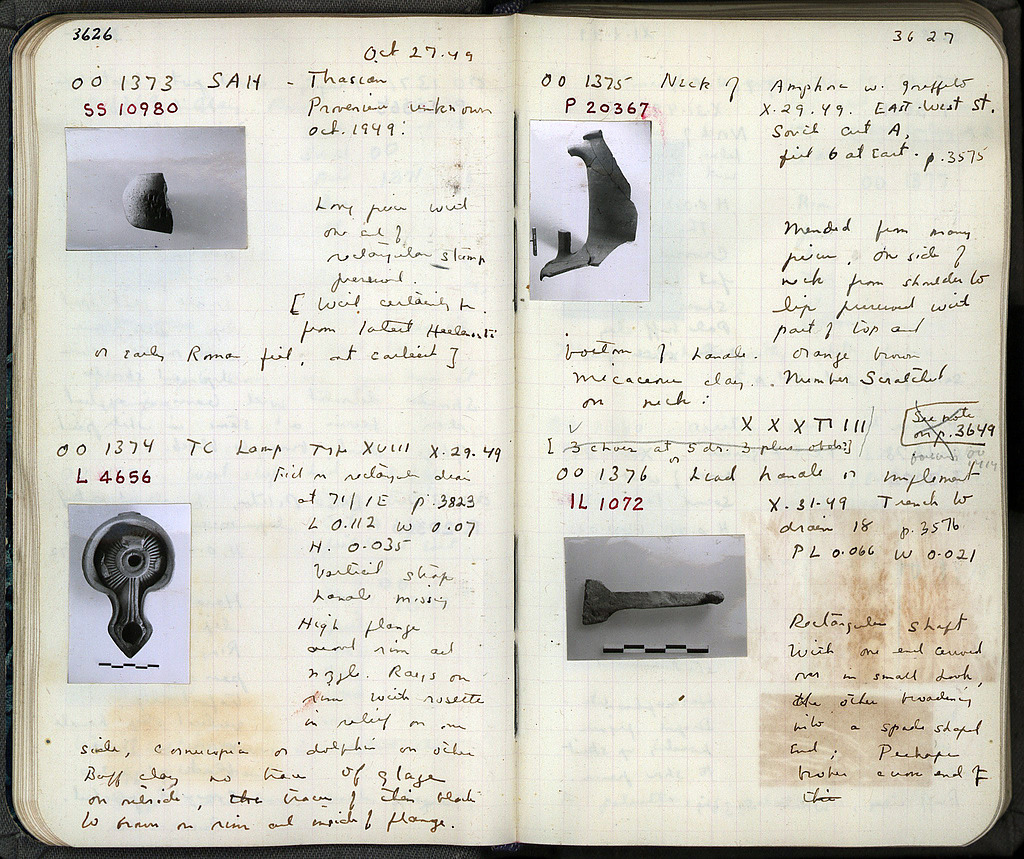 3626
Oct 27.49
OO 1373 SAH - Thasian
SS 10980
Provenience unknown
Oct. 1949:
Long piece with
one end of
rectangular stamp
preserved.
[ Well certainly
from latest Hellenistic
or early Roman fill, at earliest ]
OO 1374 TC Lamp Type XVIII X.29.49
L 4656
Fill in rectangular drain
at 71/1E p. 3823
L 0.112 W 0.07
H. 0.035
Vertical strap
handle missing
High flange
around rim and
nozzle. Rays on
rim with rosette
in relief on one
side, cornucopia or dolphin on other
Buff clay no trace of glaze
on outside, the traces of thin black
to brown on rim and inside of flange.
3627
OO 1375 Neck of Amphora w. graffito
P 20367
X.29.49. East-West St.
South cut A,
fill 6 at East. p. 3575
Mended from many
pieces. One side of
neck from shoulder to
lip preserved with
part of top and
bottom of handle. Orange brown
micaceous clay. Number Scratched
on neck:
XXX III
[ 3 choes at 5 dr. 3 plus obols ]
See note
on p. 3649
OO 1376 Lead handle or implement
IL 1072
X.31.49 Trench W
drain 18 p. 3576
PL 0.066 W 0.021
Rectangular shaft
With one end curved
over in small hook,
the other broadening
into a spade shaped
End; Perhaps
broken across end of
this